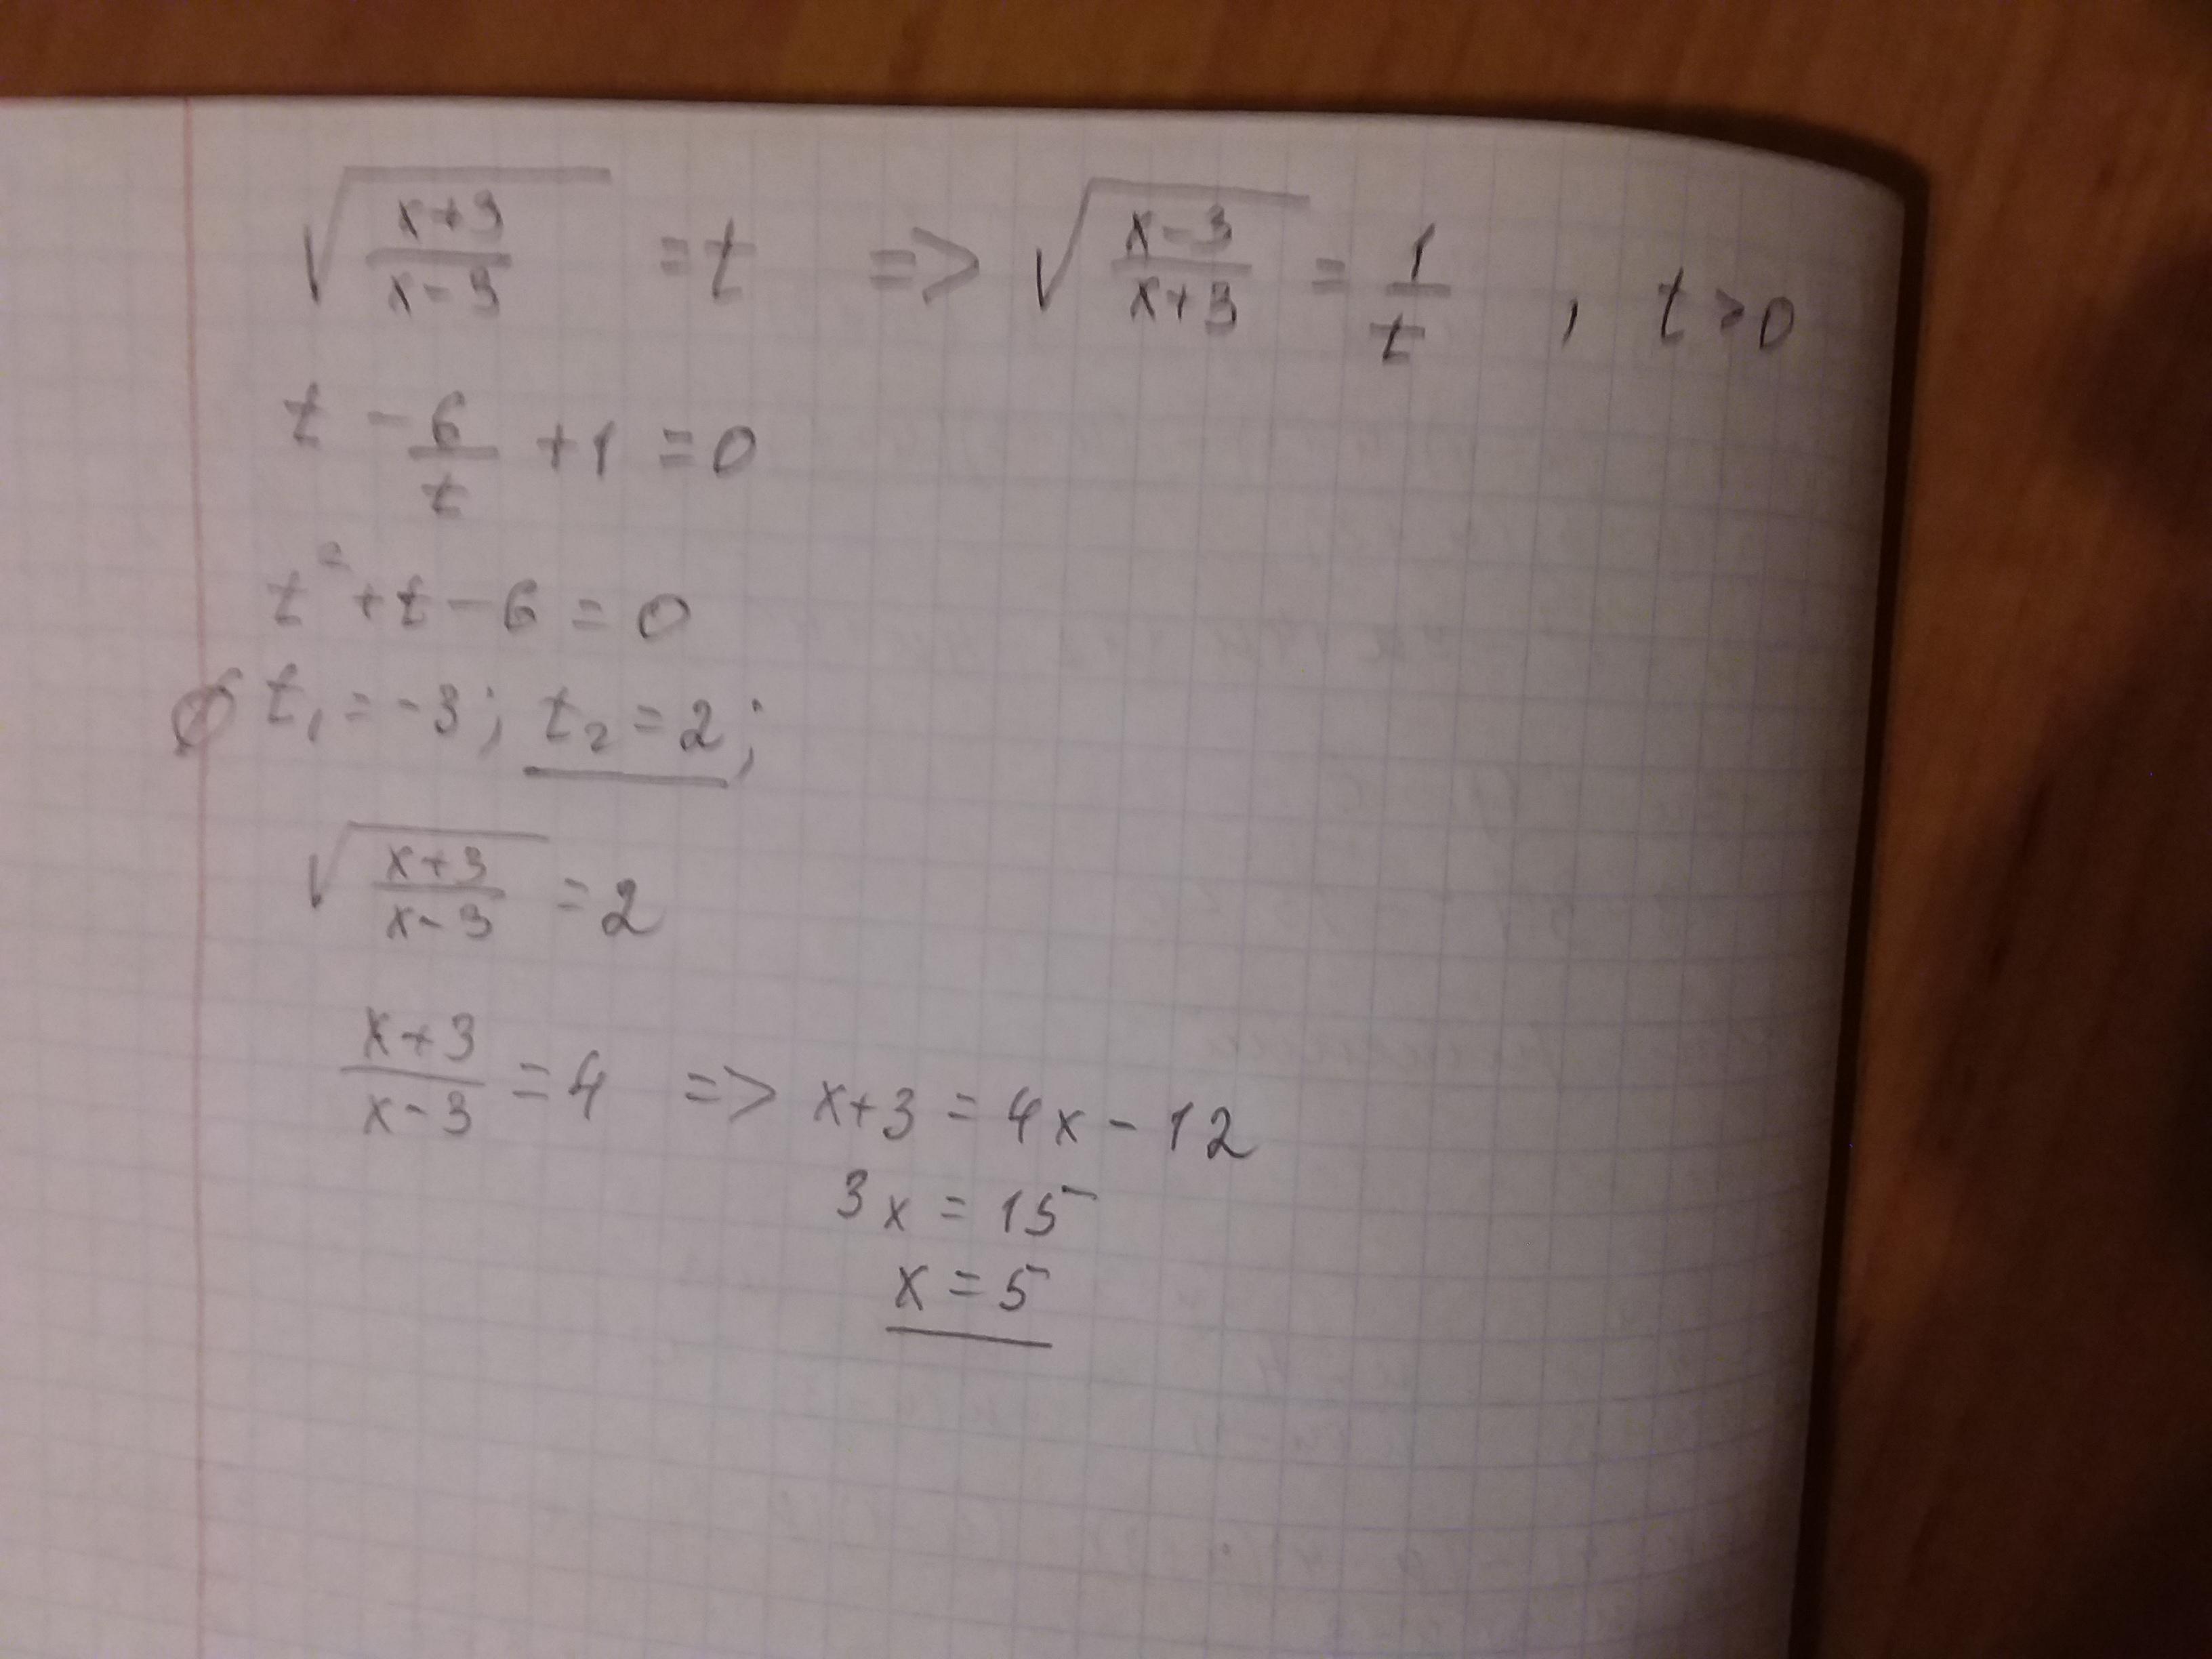 √((x+3)/(x-3)) = t => √((x-3)/(x+3)) = 1/t , t>0
t - 6/t + 1 = 0
t² + t - 6 = 0
∅ t₁ = -3; t₂ = 2;
√((x+3)/(x-3)) = 2
(x+3)/(x-3) = 4 => x+3 = 4x - 12
3x = 15
x = 5